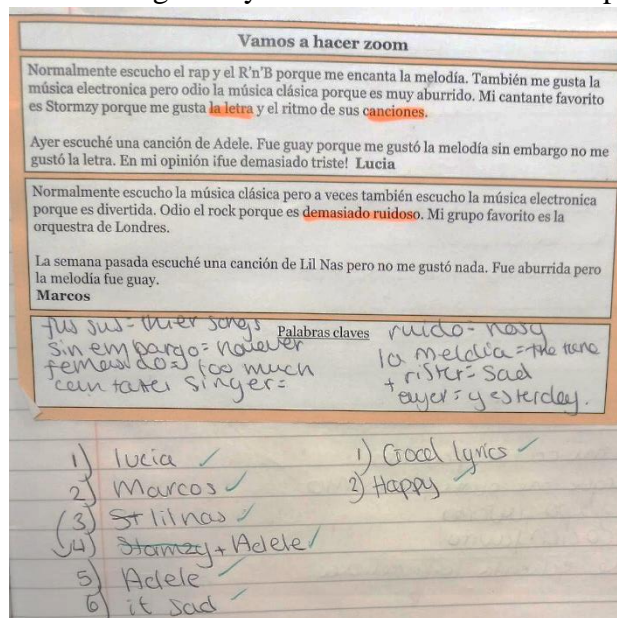 Vamos a hacer zoom
Normalmente escucho el rap y el R'n'B porque me encanta la melodía. También me gusta la
música electronica pero odio la música clásica porque es muy aburrido. Mi cantante favorito
es Stormzy porque me gusta la letra y el ritmo de sus canciones.
Ayer escuché una canción de Adele. Fue guay porque me gustó la melodía sin embargo no me
gustó la letra. En mi opinión ¡fue demasiado triste! Lucia
Normalmente escucho la música clásica pero a veces también escucho la música electronica
porque es divertida. Odio el rock porque es demasiado ruidoso. Mi grupo favorito es la
orquestra de Londres.
La semana pasada escuché una canción de Lil Nas pero no me gustó nada. Fue aburrida pero
la melodía fue guay.
Marcos
Palabras claves
sus = thier songs
sin embargo = however
= too much
singer =
ruido = nosy
la meldia = the tune
= sad
ayer = yesterday.
1) lucia
2) Marcos
3) St lil nas
4) Stormzy + Adele
5) Adele
6) it sad
1) Good lyrics
2) Happy